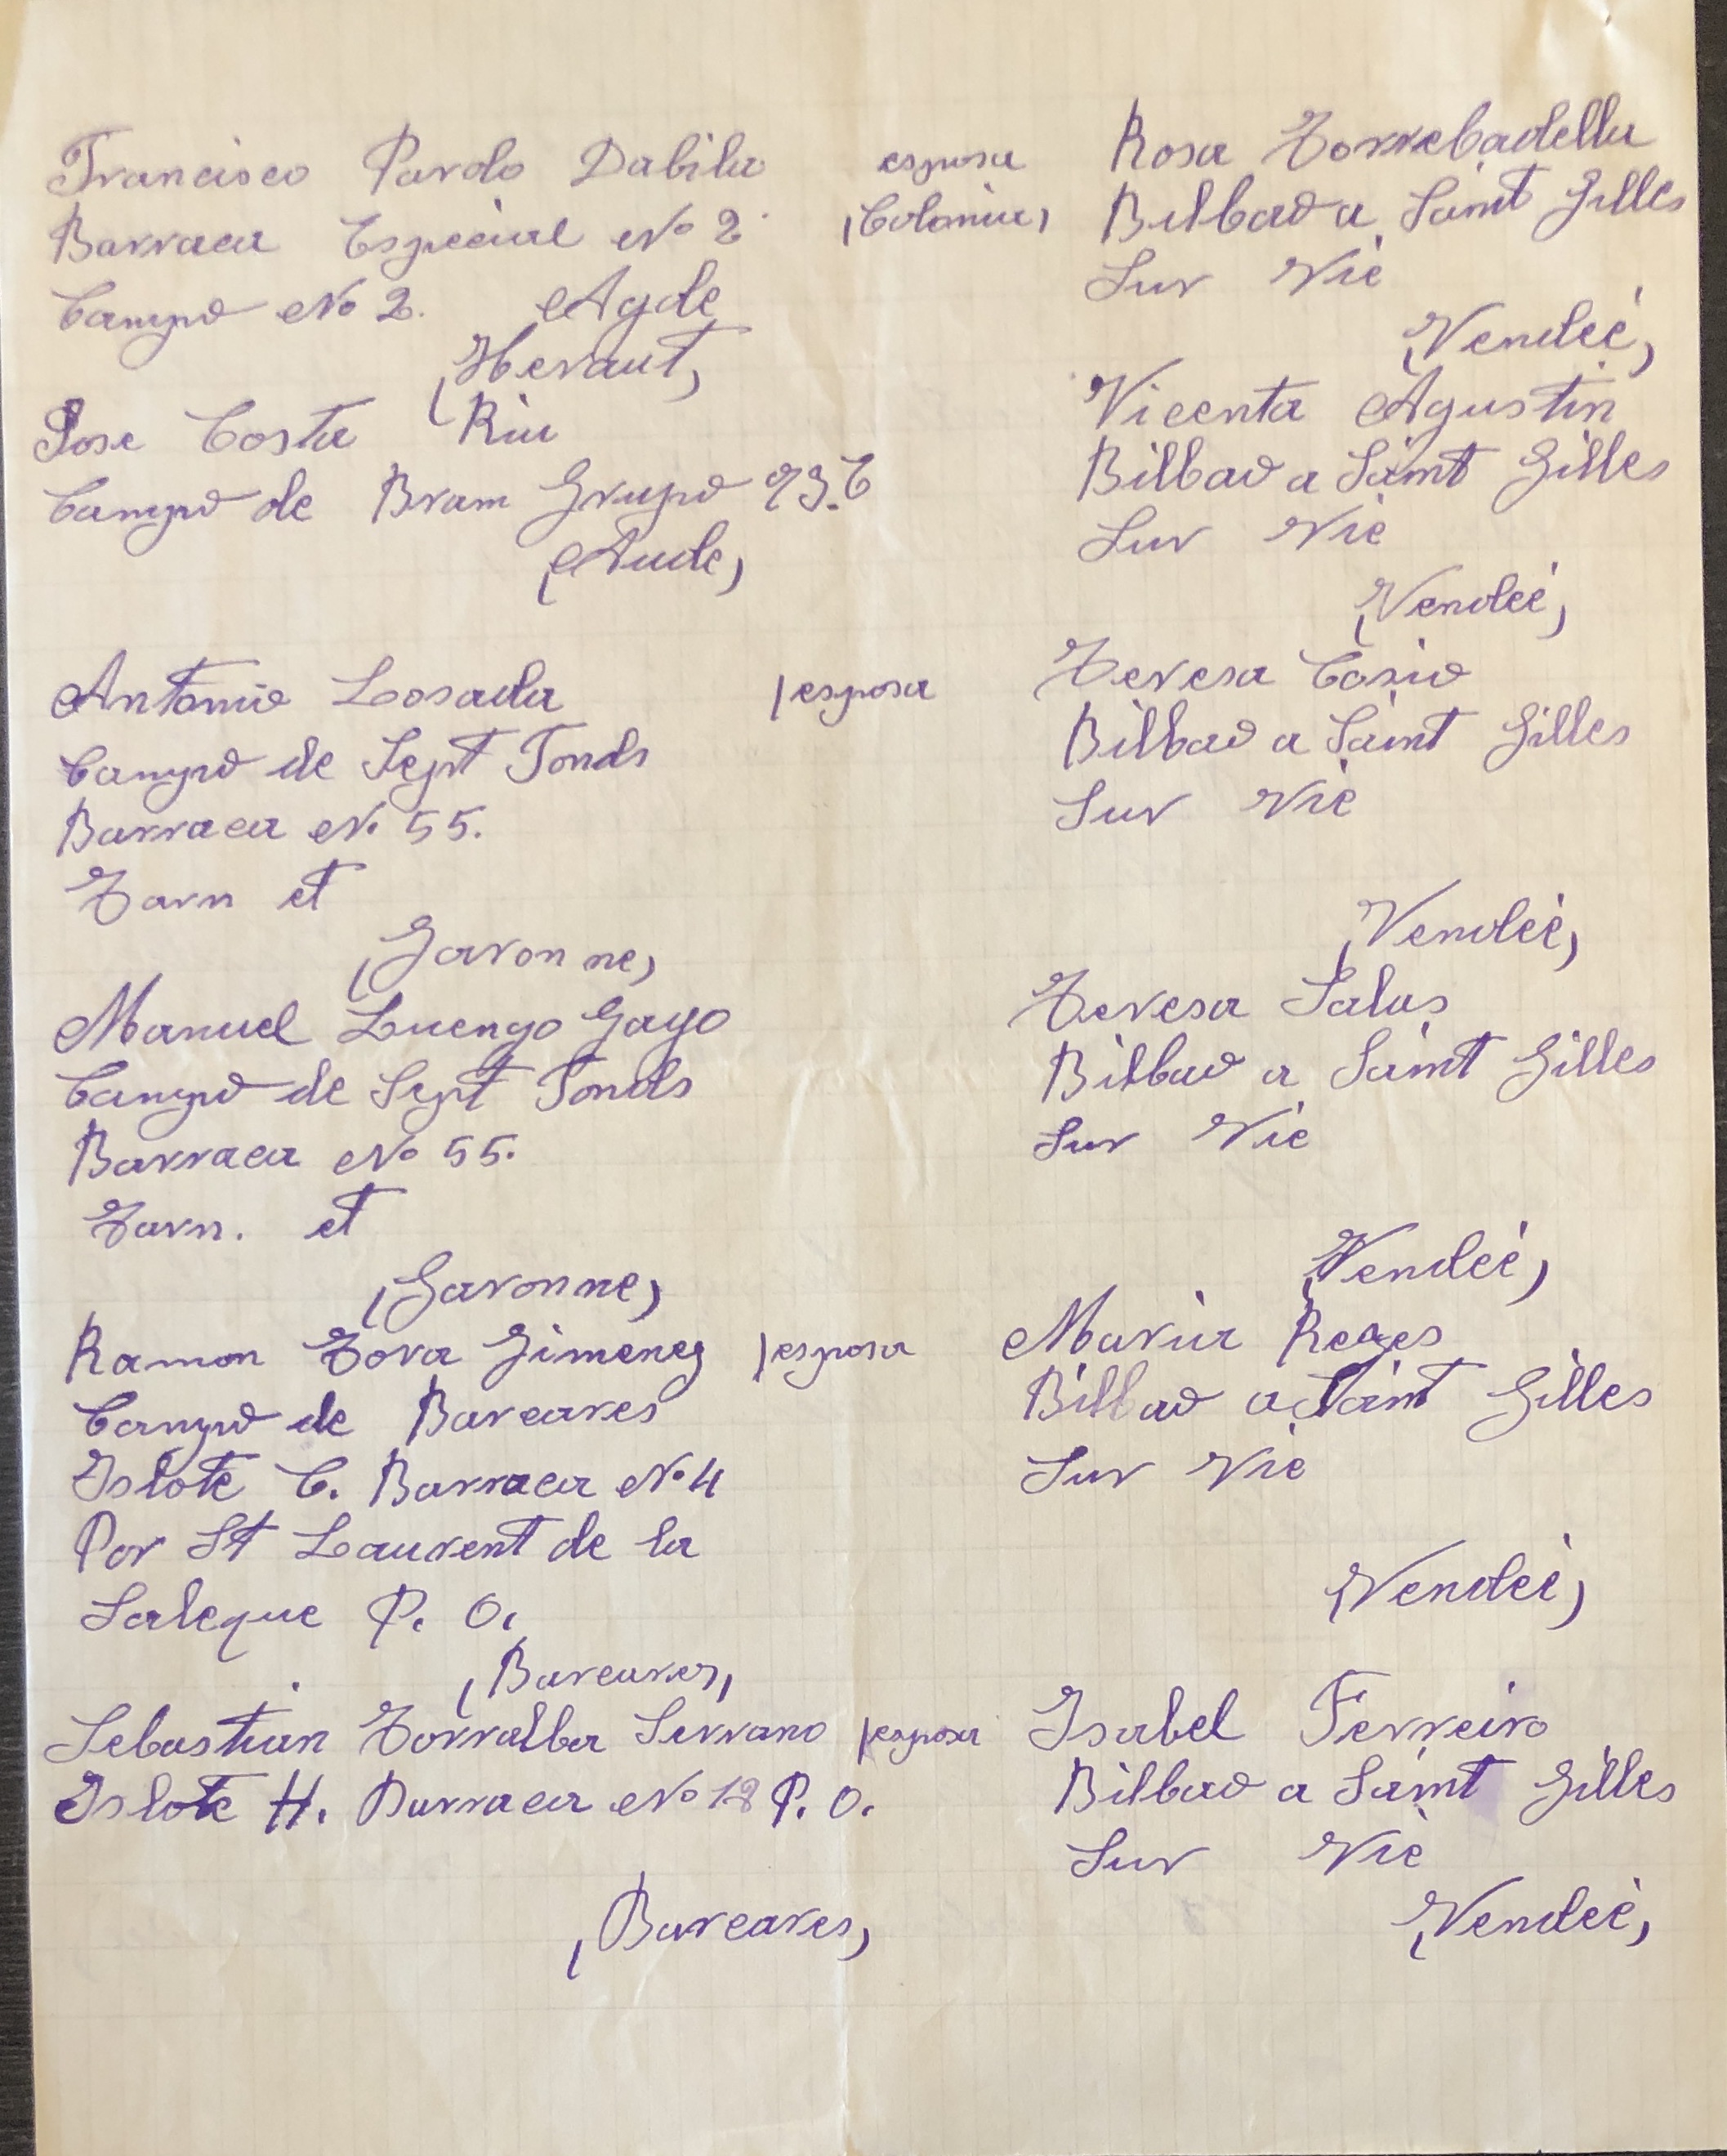 Francisco Pardo Dabila esposa Rosa Torrebadella
Barraca Especial No 2. (Colonia) Bilbao a Saint Gilles
Campo No 2. Agde Sur Vie
(Heraut) (Vendeé)
Jose Costa Riu Vicenta Agustin
Campo de Bram Grupo 93.C Bilbao a Saint Gilles
(Aude) Sur Vie
(Vendeé)
Antonio Losada (esposa Teresa Cosio
Campo de Sept Fonds Bilbao a Saint Gilles
Barraca No 55. Sur Vie
Tarn et
(Garonne) (Vendeé)
Manuel Luengo Gago Teresa Salas
Campo de Sept Fonds Bilbao a Saint Gilles
Barraca No 55. Sur Vie
Tarn. et
(Garonne) (Vendeé)
Ramon Tova Gimenez (esposa Maria Reges
Campo de Barcares Bilbao a Saint Gilles
Islote C. Barraca No 4 Sur Vie
Por St Laurent de la
Saleque P. O. (Vendeé)
(Barcares)
Sebastian Torralba Serrano (esposa Isabel Ferreiro
Islote H. Barraca No 18 P. O. Bilbao a Saint Gilles
Sur Vie
(Barcares) (Vendeé)